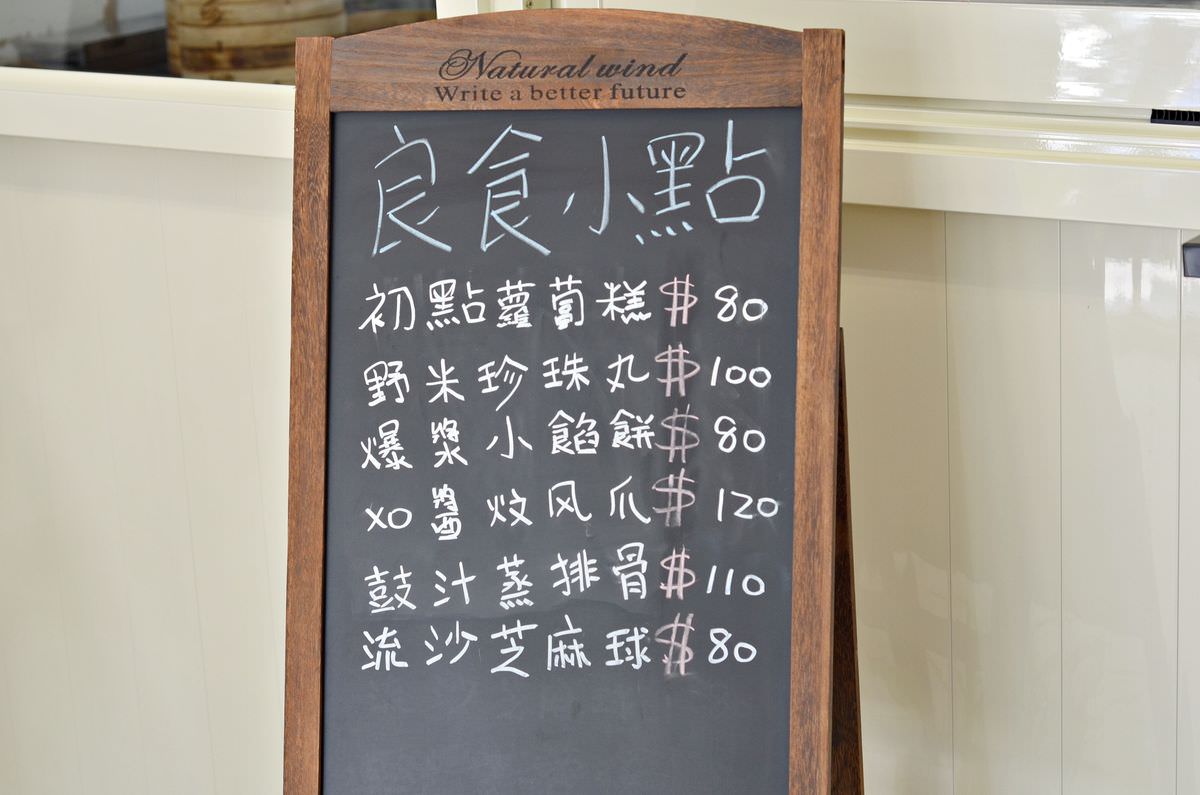 Natural wind
Write a better future
良食小點
初點蘿蔔糕$80
野米珍珠丸$100
爆漿小餡餅$80
XO醬炆风爪$120
鼓汁蒸排骨$110
流沙芝麻球$80